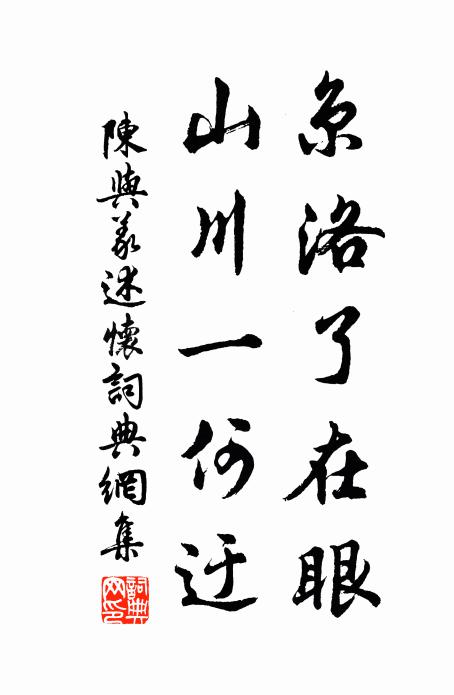 京洛了在眼
山川一何迂
陳與義述懷詞典網集
詞典网印